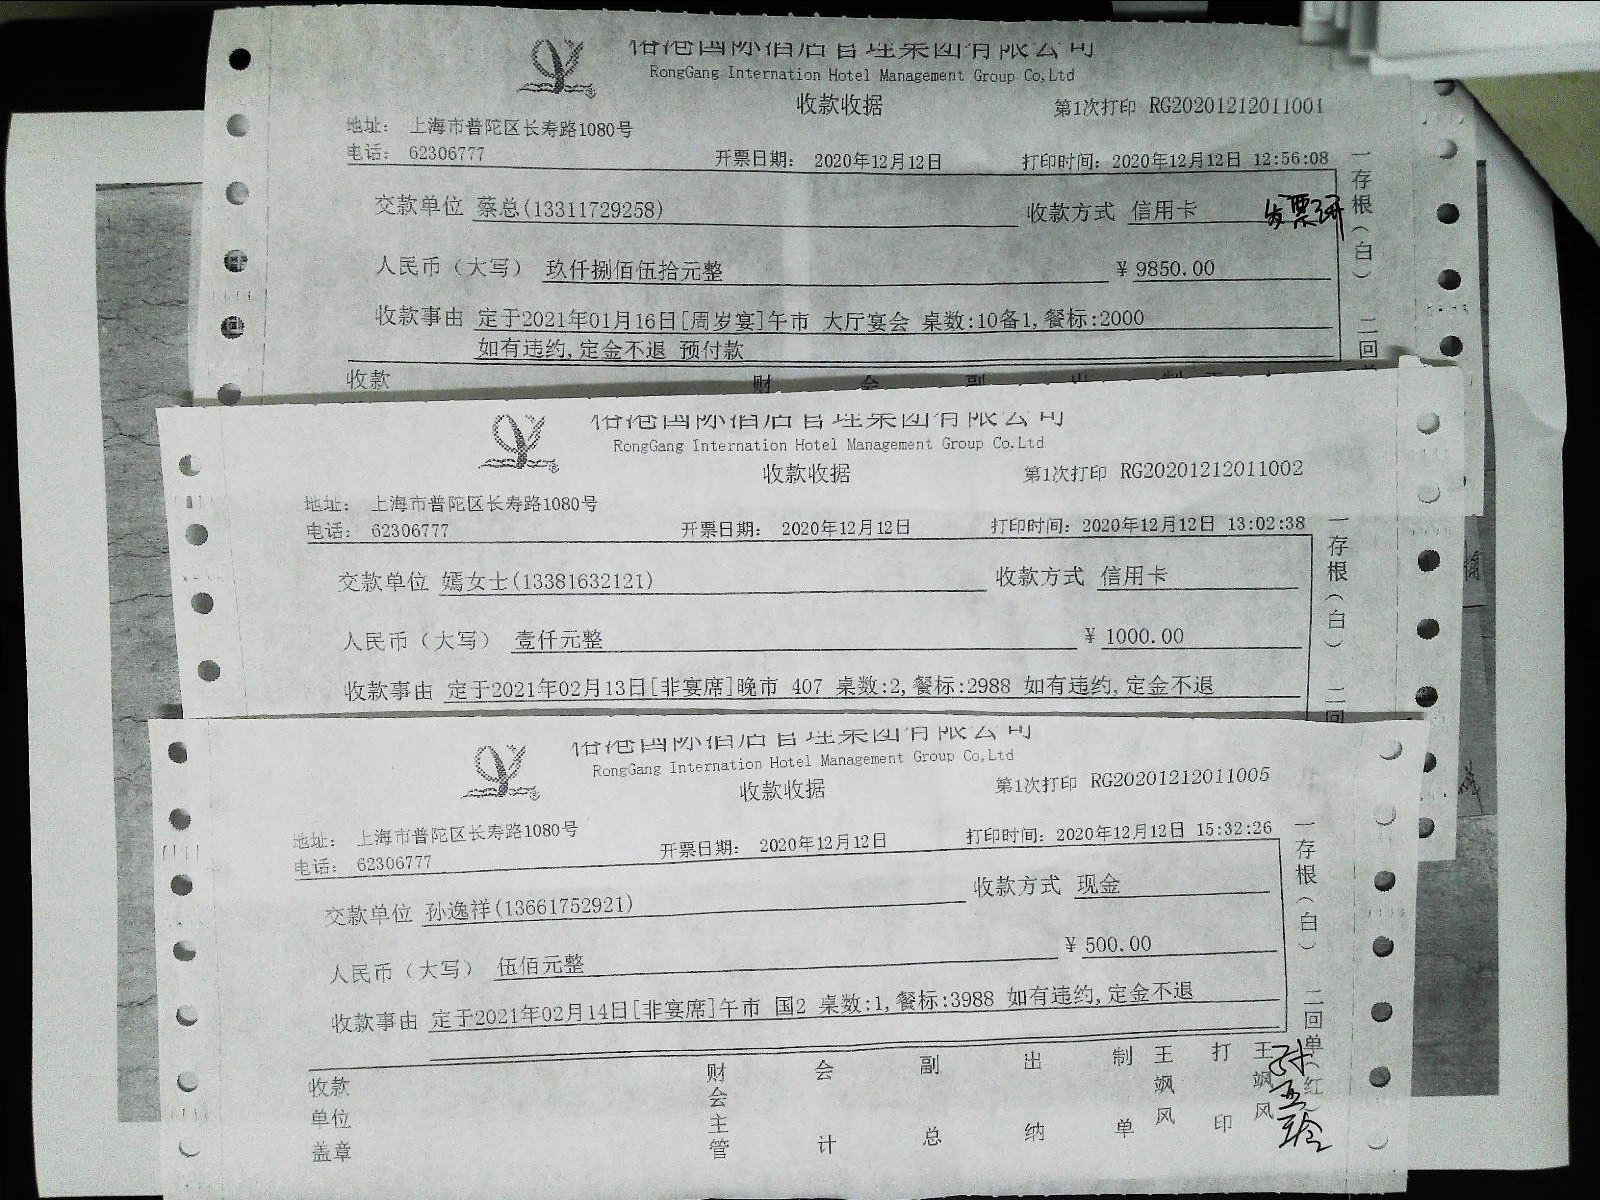 国际酒店管理集团有限公司
RongGang Internation Hotel Management Group Co,Ltd
收款收据
第1次打印 RG20201212011001
地址： 上海市普陀区长寿路1080号
电话： 62306777
开票日期： 2020年12月12日
打印时间：2020年12月12日 12:56:08
交款单位 蔡总(13311729258)
收款方式 信用卡
发票已开
人民币（大写） 玖仟捌佰伍拾元整
￥ 9850.00
收款事由 定于2021年01月16日[周岁宴]午市 大厅宴会 桌数:10备1,餐标:2000
如有违约,定金不退 预付款
一存根（白） 二回
收款 财 会 副 出 制
国际酒店管理集团有限公司
RongGang Internation Hotel Management Group Co.Ltd
收款收据
第1次打印 RG20201212011002
地址： 上海市普陀区长寿路1080号
电话： 62306777
开票日期： 2020年12月12日
打印时间：2020年12月12日 13:02:38
交款单位 嫣女士(13381632121)
收款方式 信用卡
人民币（大写） 壹仟元整
￥ 1000.00
收款事由 定于2021年02月13日[非宴席]晚市 407 桌数:2,餐标:2988 如有违约,定金不退
一存根（白） 二回
国际酒店管理集团有限公司
RongGang Internation Hotel Management Group Co,Ltd
收款收据
第1次打印 RG20201212011005
地址： 上海市普陀区长寿路1080号
电话： 62306777
开票日期： 2020年12月12日
打印时间：2020年12月12日 15:32:26
交款单位 孙逸祥(13661752921)
收款方式 现金
人民币（大写） 伍佰元整
￥ 500.00
收款事由 定于2021年02月14日[非宴席]午市 国2 桌数:1,餐标:3988 如有违约,定金不退
一存根（白） 二回单（红）
收款单位盖章
财会主管
会计
副总
出纳
制单
王飒风
打印
王飒风